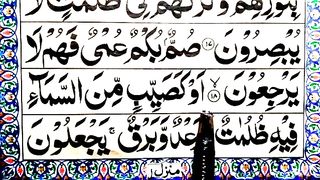 بِنُوْرِهِمْ وَتَرَكَهُمْ فِىْ ظُلُمٰتٍ لَّا
يُبْصِرُوْنَ ۝۱۷ صُمٌّۢ بُكْمٌ عُمْىٌ فَهُمْ لَا
يَرْجِعُوْنَ ۝۱۸ۙ اَوْ كَصَيِّبٍ مِّنَ السَّمَآءِ
فِيْهِ ظُلُمٰتٌ وَّرَعْدٌ وَّبَرْقٌ ۚ يَجْعَلُوْنَ
منزل ۱